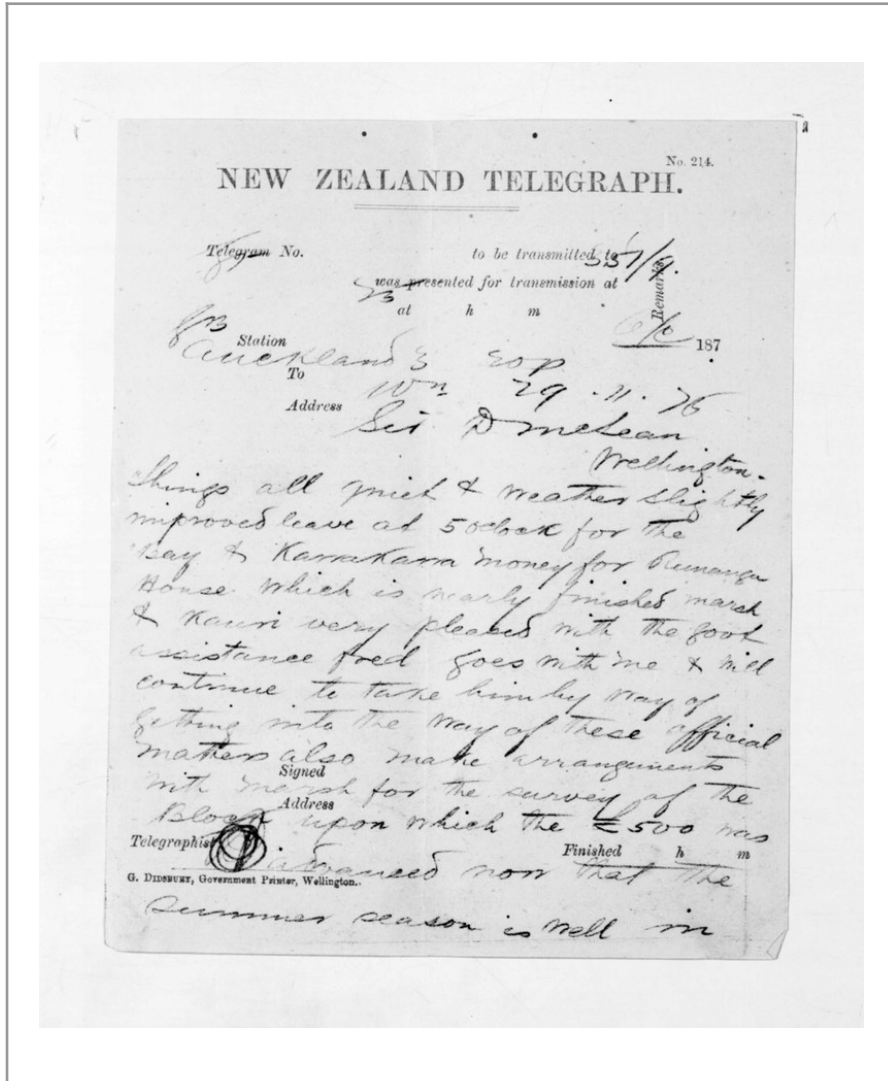 No. 214.
NEW ZEALAND TELEGRAPH.
Telegram No. to be transmitted to 357/9.
was presented for transmission at
at h m
Remarks
187
Station
Auckland 3 20p
To
Wn 29 . 11 . 76
Address
Sir D McLean
Wellington.
Things all quiet & weather slightly
improved leave at 5 oclock for the
Bay & KawaKawa money for Runanga
House which is nearly finished marsh
& Kauri very pleased with the govt
assistance fred goes with me & will
continue to take him by way of
getting into the way of these official
matters also make arrangements
Signed
with marsh for the survey of the
Address
Block upon which the £500 was
Telegraphist Finished h m
advanced now that the
G. DIDSBURY, Government Printer, Wellington.
summer season is well in